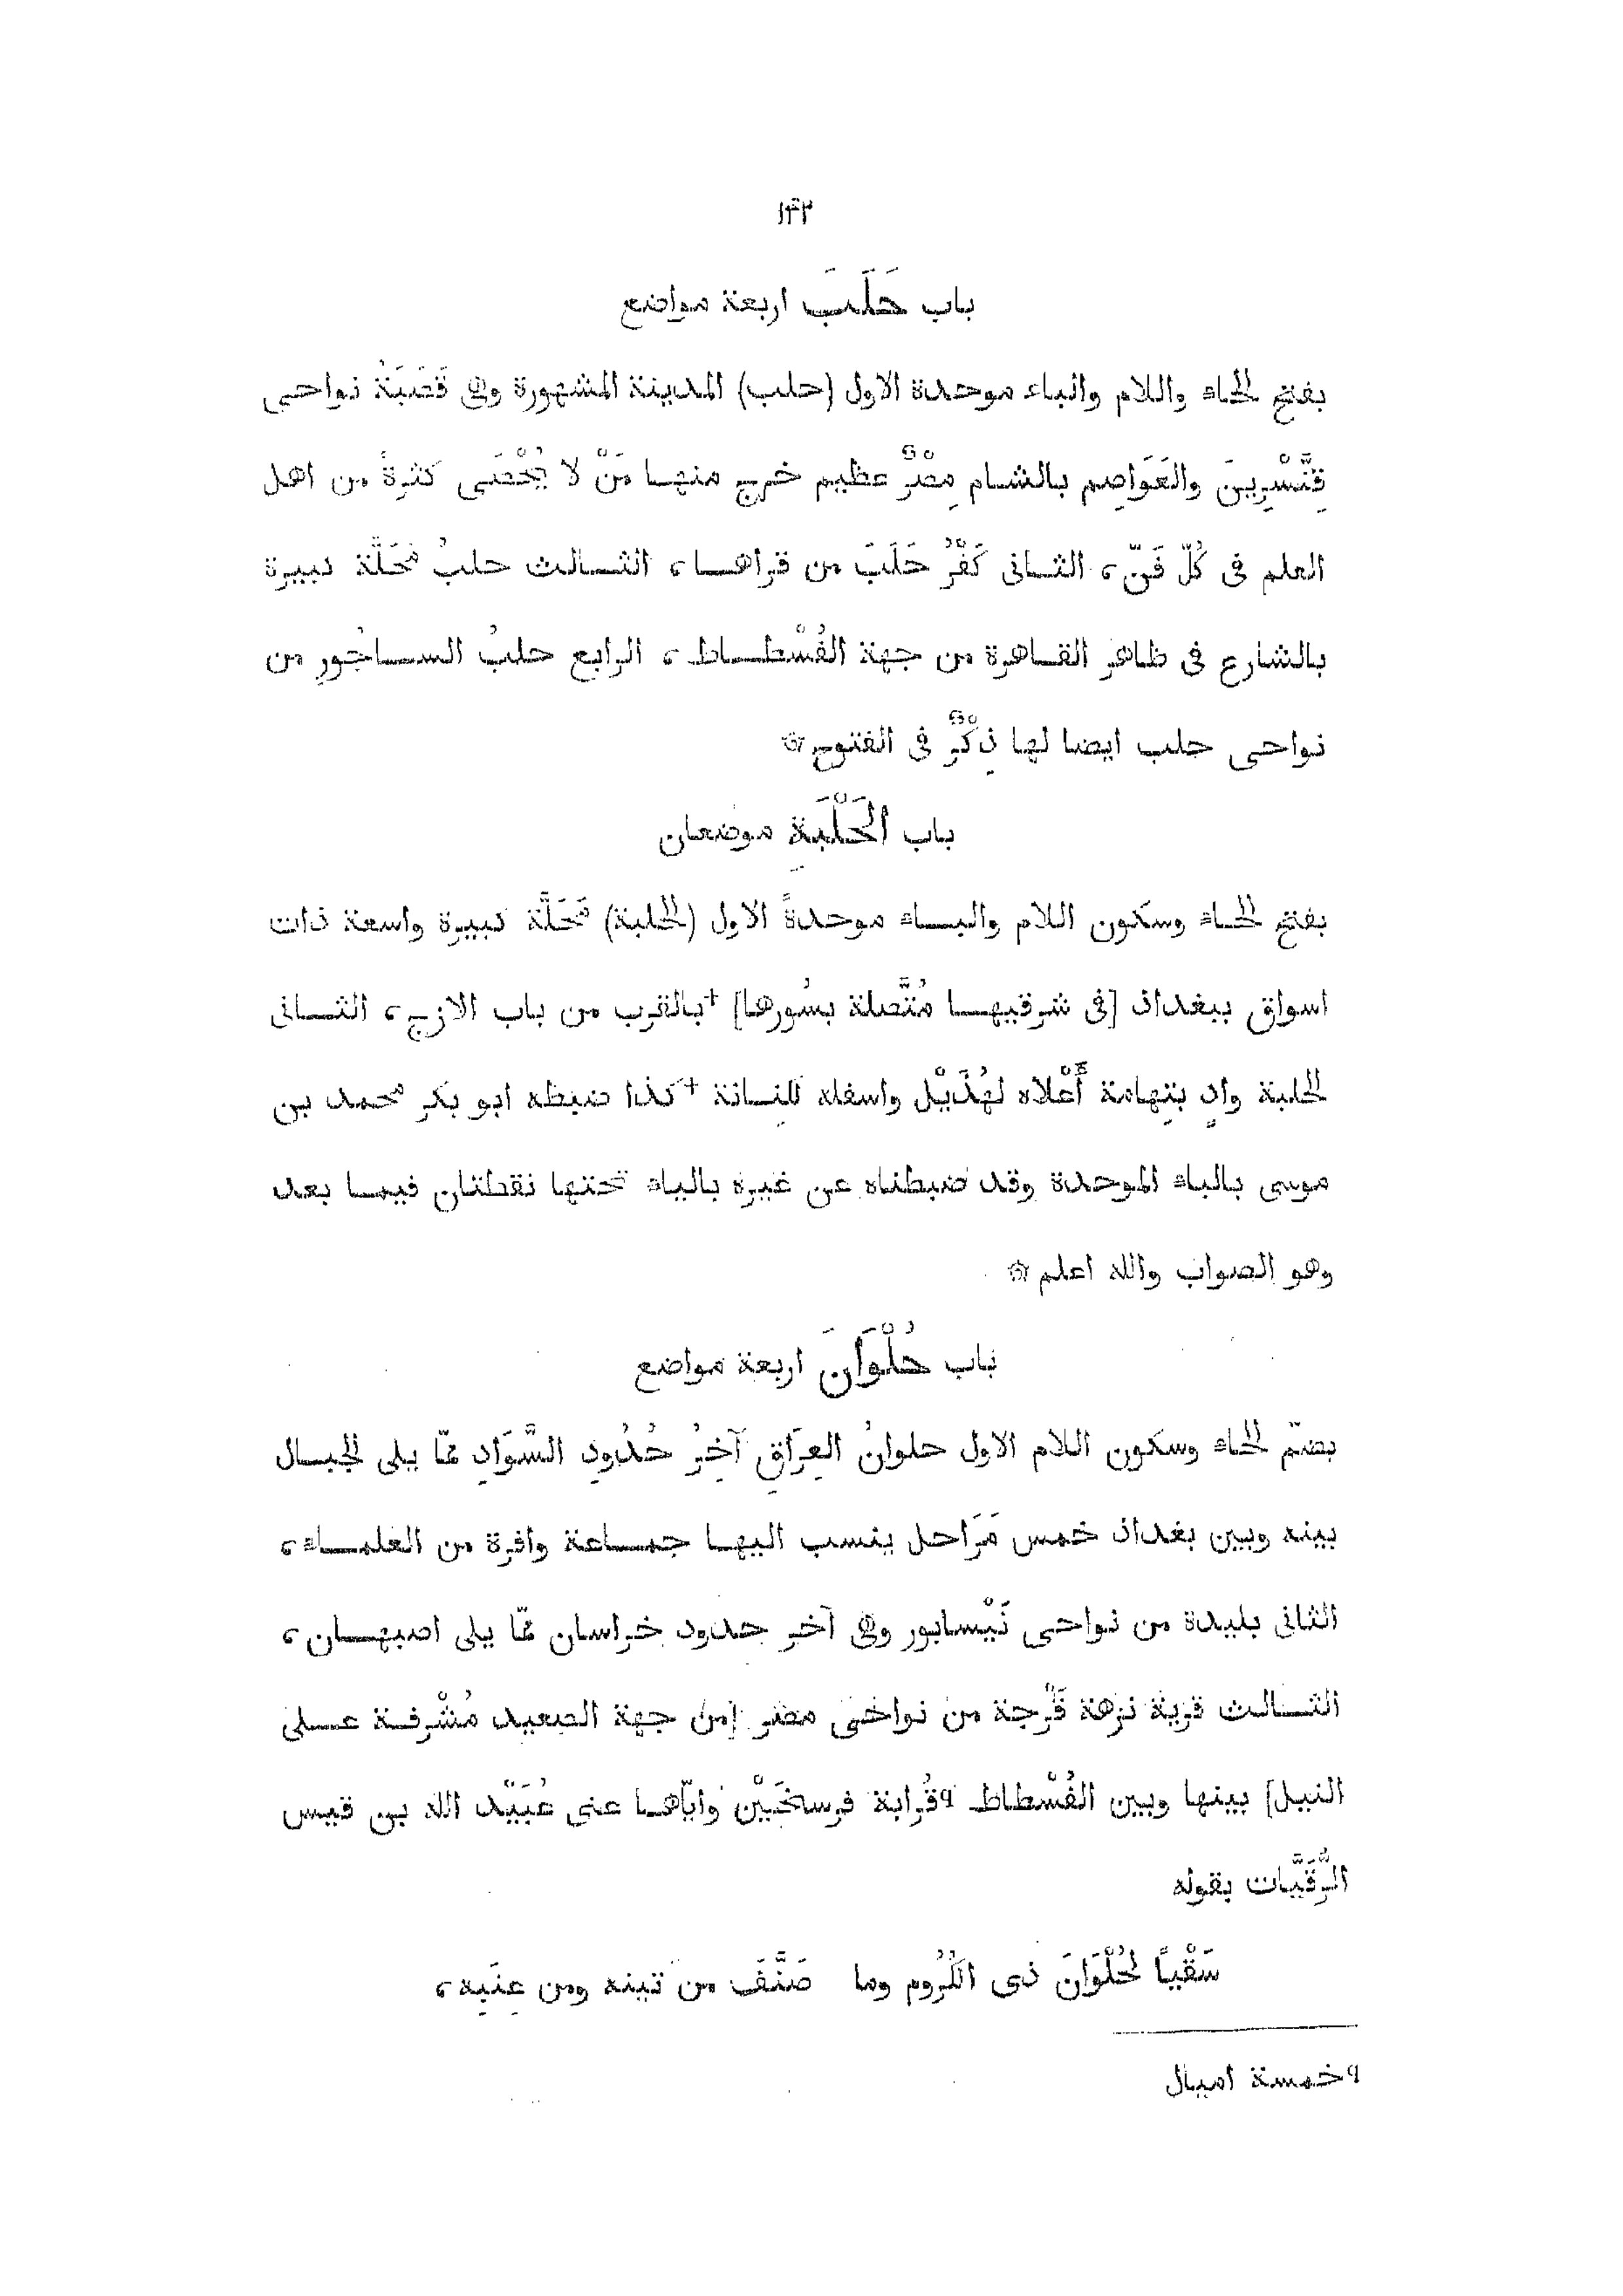 ١٤٢
باب حَلَبَ اربعة مواضع
بفتح الحاء واللام والباء موحدة الاول (حلب) المدينة المشهورة وهى قَصَبَةُ نواحى
قِنَّسْرِينَ والعَوَاصِم بالشام مِصْرٌ عظيم خرج منها مَنْ لا يُحْصَى كثرةً من اهل
العلم فى كُلّ فَنّ، الثانى كَفْرُ حَلَبَ من قراها، الثالث حلبُ مَحَلَّة كبيرة
بالشارع فى ظاهر القاهرة من جهة الفُسْطاط، الرابع حلبُ الساجُورِ من
نواحى حلب ايضا لها ذِكْرٌ فى الفتوح۞
باب الحَلْبَةِ موضعان
بفتح الحاء وسكون اللام والباء موحدةً الاول (الحلبة) مَحَلَّة كبيرة واسعة ذات
اسواق ببغداد [فى شرقيها مُتَّصلة بسُورها] +بالقرب من باب الازج، الثانى
الحلبة وادٍ بتِهامة أَعْلاه لهُذَيْل واسفله لكِنانة +كذا ضبطه ابو بكر محمد بن
موسى بالباء الموحدة وقد ضبطناه عن غيره بالياء تحتها نقطتان فيما بعد
وهو الصواب والله اعلم۞
باب حُلْوَانَ اربعة مواضع
بضمّ الحاء وسكون اللام الاول حلوانُ العِرَاقِ آخِرُ حُدُودِ السَّوَادِ ممّا يلى الجبال
بينه وبين بغداد خمس مَرَاحل ينسب اليها جماعة وافرة من العلماء،
الثانى بليدة من نواحى نَيْسابور وهى آخر حدود خراسان ممّا يلى اصبهان،
الثالث قرية نزهة فَرْجة من نواحى مصر [من جهة الصعيد مُشْرفة على
النيل] بينها وبين الفُسْطاط ٩قُرابة فرسخَيْن وايّاها عنى عُبَيْد الله بن قيس
الرُّقَيَّات بقوله
سَقْيًا لحُلْوَانَ ذى الكُرُوم وما صَنَّفَ من تينه ومن عِنَبِه،
٩خمسة اميال